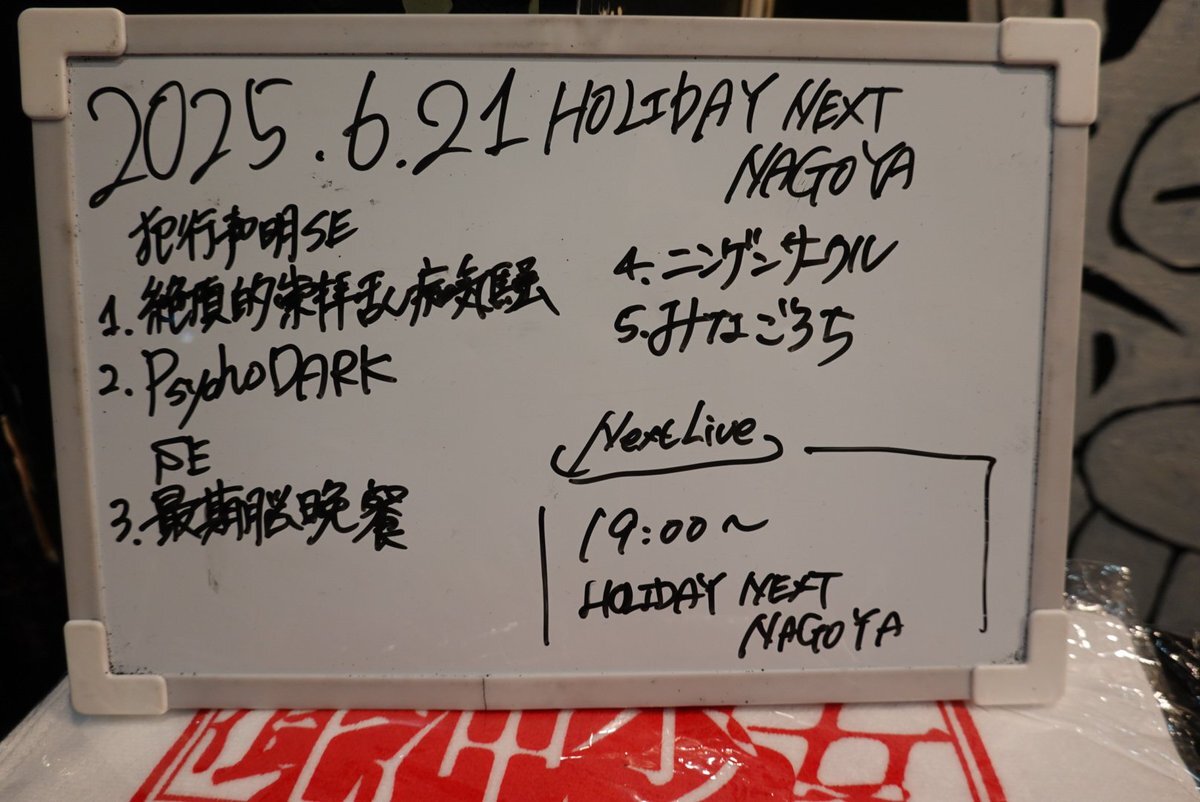 2025.6.21 HOLIDAY NEXT
NAGOYA
犯行声明SE
1. 絶頂的崇拝乱病気騒
2. PsychoDARK
SE
3. 最期脳晩餐
4. ニンゲンサアクル
5. みなごろち
Next Live
19:00〜
HOLIDAY NEXT
NAGOYA